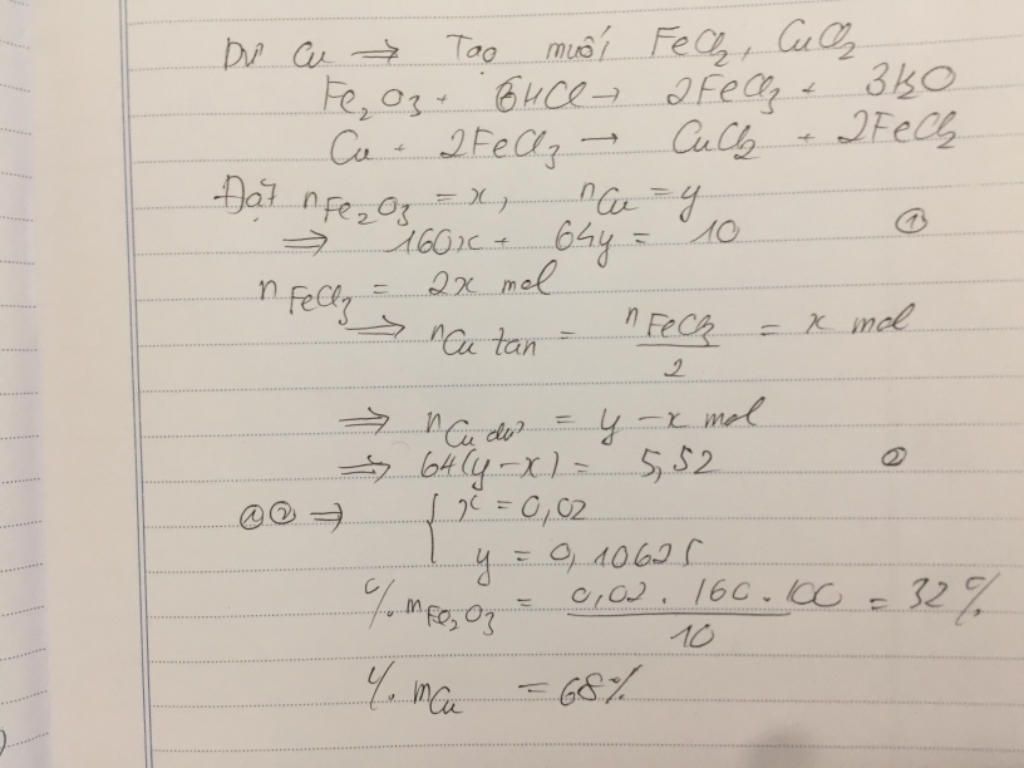 Dư Cu ⇒ Tạo muối FeCl2, CuCl2
Fe2O3 + 6HCl → 2FeCl3 + 3H2O
Cu + 2FeCl3 → CuCl2 + 2FeCl2
Đặt nFe2O3 = x, nCu = y
⇒ 160x + 64y = 10 ①
nFeCl3 = 2x mol
⇒ nCu tan = nFeCl3/2 = x mol
⇒ nCu dư = y - x mol
⇒ 64(y-x) = 5,52 ②
①② ⇒ { x = 0,02
y = 0,10625
% mFe2O3 = 0,02 . 160 . 100/10 = 32%
% mCu = 68%